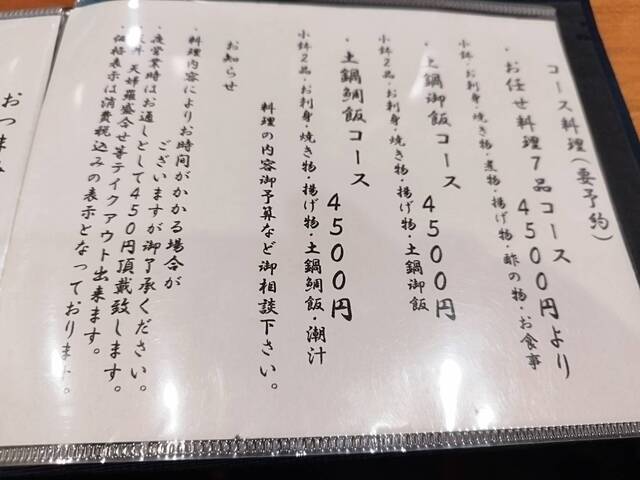 コース料理(要予約)
・お任せ料理7品コース 4500円より
小鉢・お刺身・焼き物・煮物・揚げ物・酢の物・お食事
・土鍋御飯コース 4500円
小鉢2品・お刺身・焼き物・揚げ物・土鍋御飯
・土鍋鯛飯コース 4500円
小鉢2品・お刺身・焼き物・揚げ物・土鍋鯛飯・潮汁
料理の内容御予算など御相談下さい。
お知らせ
・料理内容によりお時間がかかる場合が
ございますが御了承ください。
・夜営業時はお通しとして450円頂戴致します。
天丼 天婦羅盛合せ等テイクアウト出来ます。
・価格表示は消費税込みの表示となっております。
おつまみ